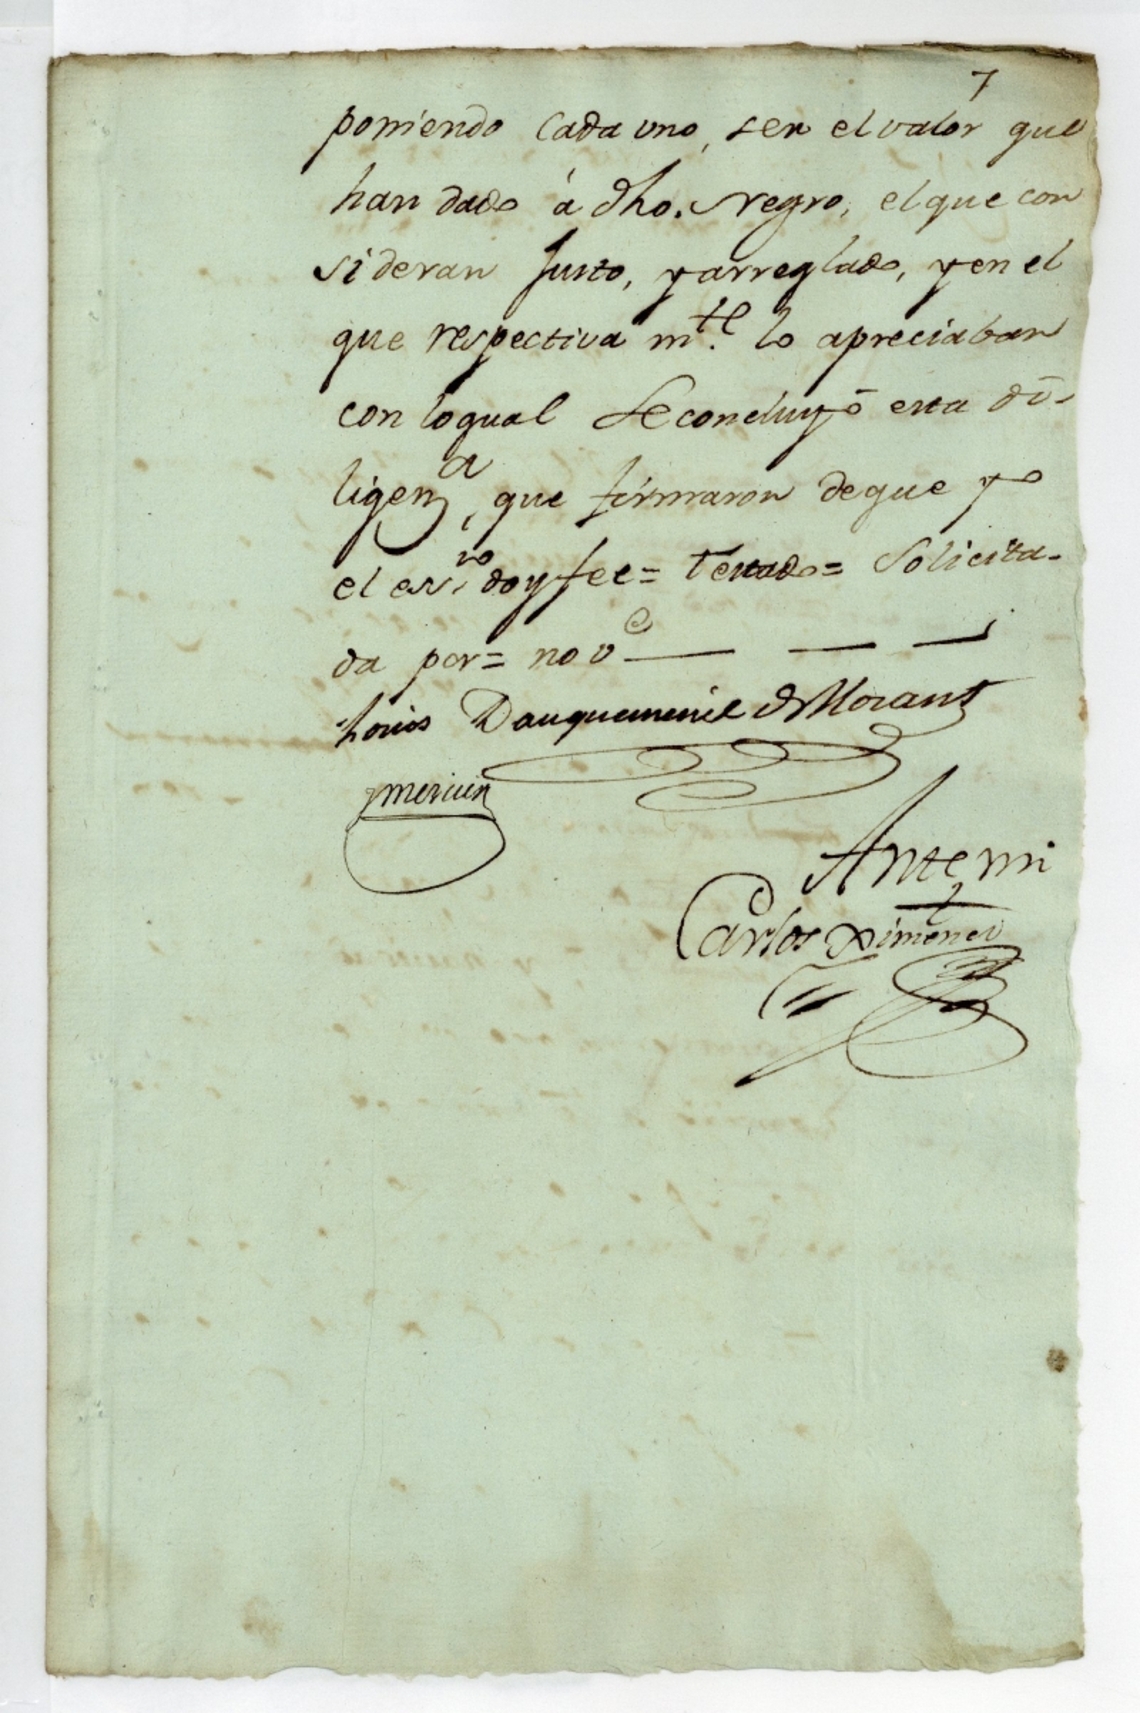 7
poniendo Cada uno, ser el valor que
han dado á dho. Negro, el que con
sideran Justo, y arreglado, y en el
que respectiva m.te lo apreciaban
con loqual se concluyó esta di-
ligen.a, que firmaron deque yo
el ess.no doy fee= Testado= Solicita-
da por= no v.e
Louis Dauquemenil de Morant
Mercier
Antemi
Carlos Ximenez